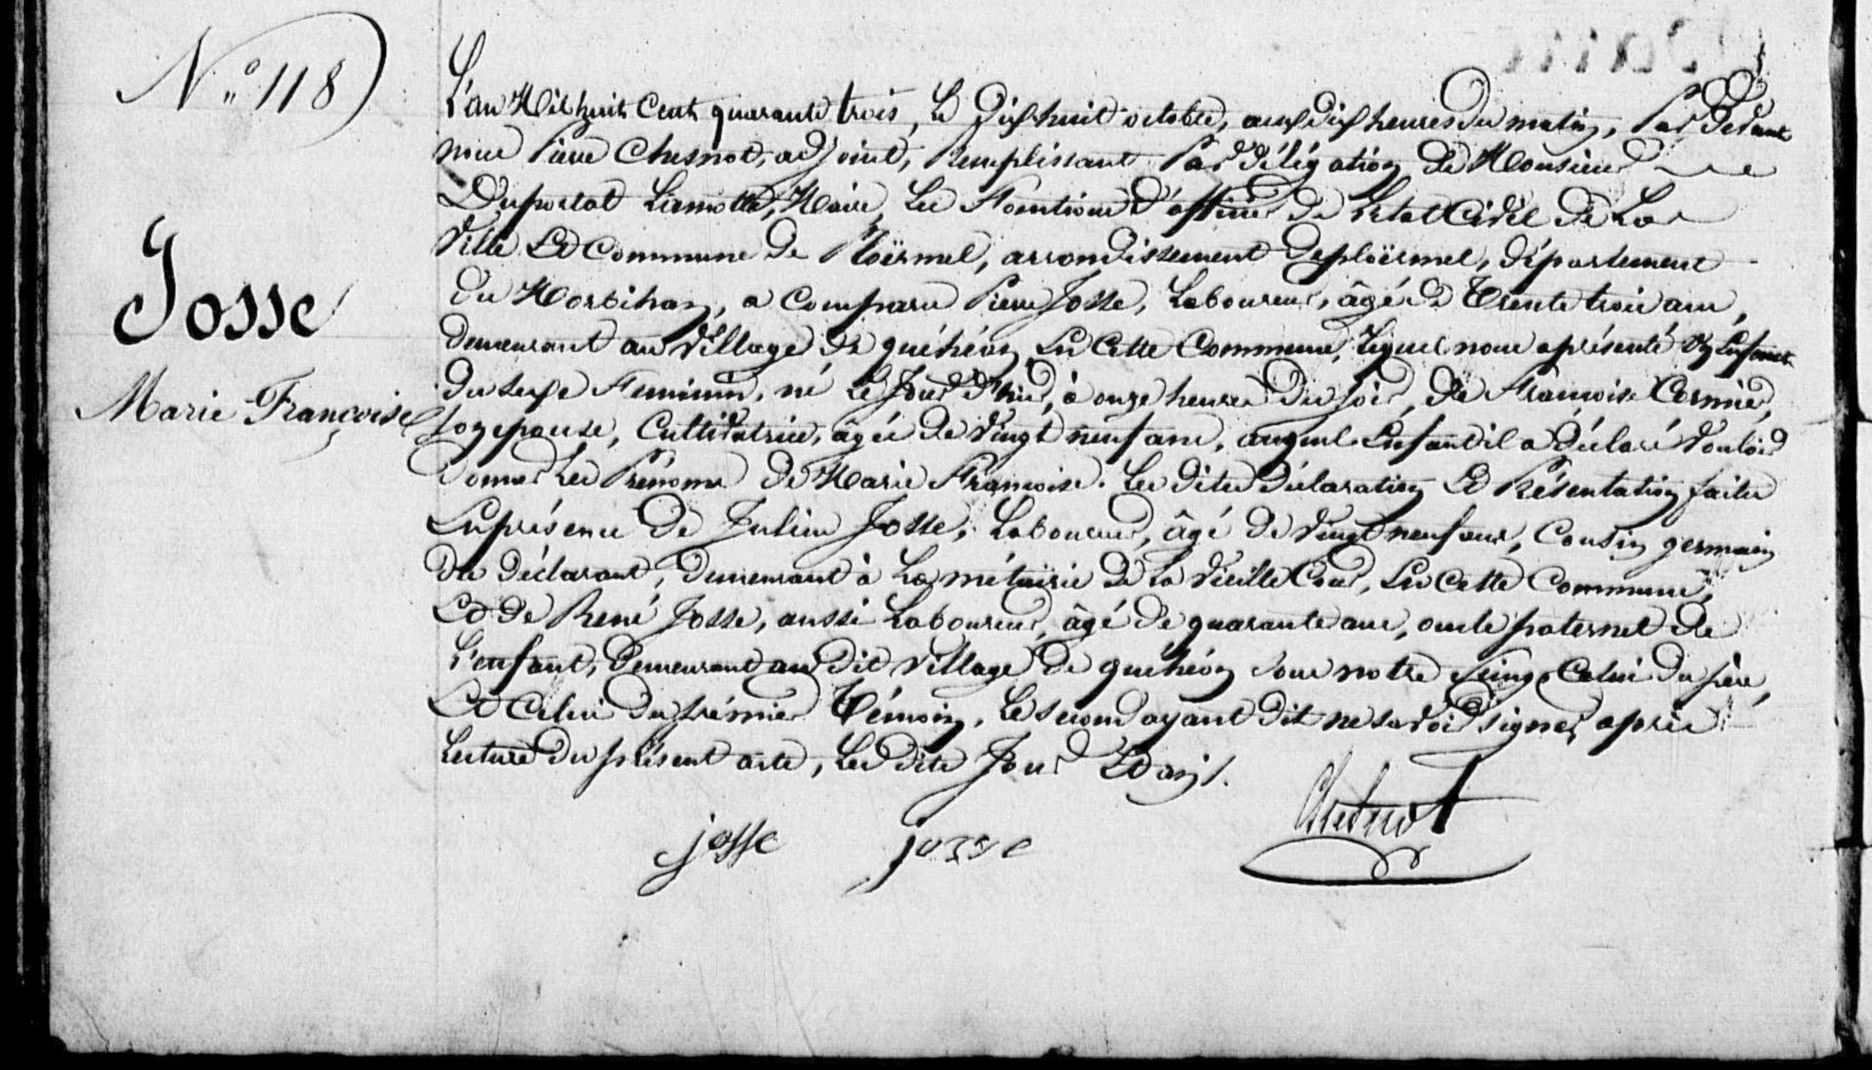 N.° 118
Josse
Marie Françoise
L'an Mil huit Cent quarante trois, Le Dix huit octobre, aux dix heures du matin, Par Devant
nous Pierre Chesnot, adjoint, Remplissant Par délégation de Monsieur
Duportal Lamotte, Maire, Les Fonctions d'officier de L'etat Civil de La
Ville Et Commune de Ploërmel, arrondissement de ploërmel, département
du Morbihan, a Comparu Pierre Josse, Laboureur, âgé de Trente trois ans,
demeurant au Village de quéhéon En Cette Commune, Lequel nous a présenté Un Enfant
du sexe Feminin, né Le Jour d'hier, à onze heures du soir, de Françoise Cormier,
son epouse, Cultivatrice, âgée de Vingt neuf ans, auquel Enfant il a déclaré Vouloir
donner Les Prénoms de Marie Françoise. Les dites déclaration Et Présentation faites
En présence de Julien Josse, Laboureur, âgé de Vingt neuf ans, Cousin germain
du déclarant, demeurant à La métairie de La Vieille Cour, En Cette Commune,
Et de René Josse, aussi Laboureur, âgé de quarante ans, oncle paternel de
L'enfant, demeurant au dit Village de quéhéon sous notre seing, Celui du père,
Et Celui du prémier Témoin, Le second ayant dit ne savoir signer, après
Lecture du présent acte, Les dits Jour Et an.
josse josse Chesnot